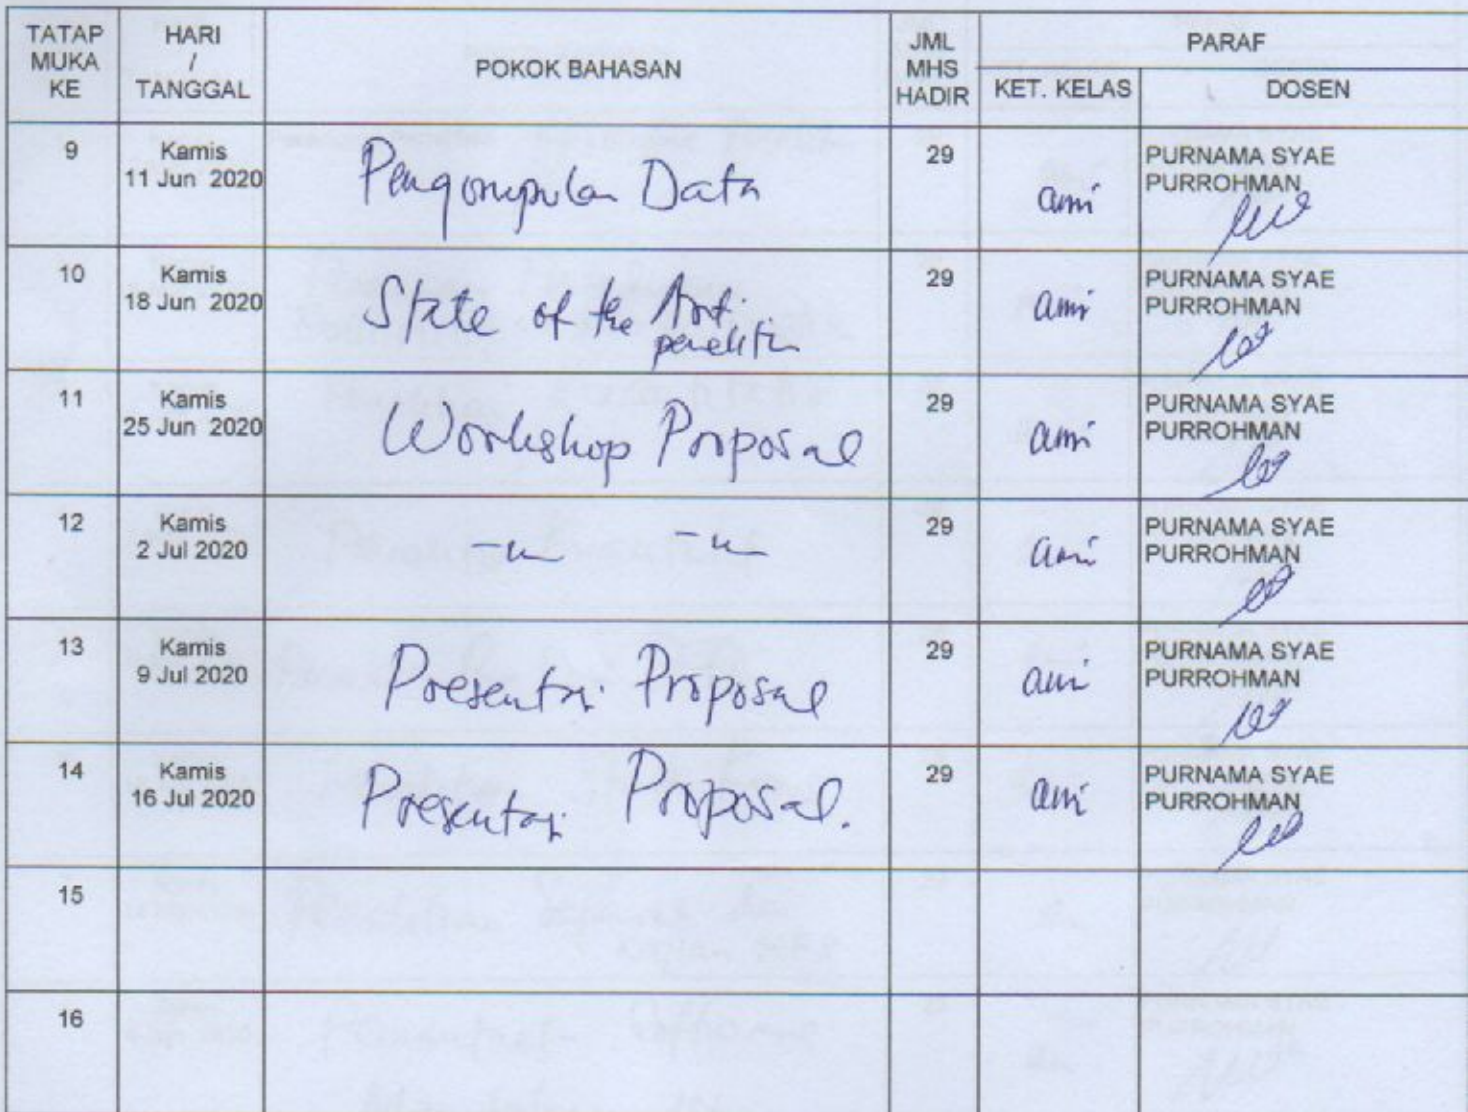 TATAP MUKA KE
HARI / TANGGAL
POKOK BAHASAN
JML MHS HADIR
PARAF
KET. KELAS
DOSEN
9 Kamis 11 Jun 2020 Pengumpulan Data 29 ami PURNAMA SYAE PURROHMAN
10 Kamis 18 Jun 2020 State of the Art penelitin 29 ami PURNAMA SYAE PURROHMAN
11 Kamis 25 Jun 2020 Workshop Proposal 29 ami PURNAMA SYAE PURROHMAN
12 Kamis 2 Jul 2020 29 ami PURNAMA SYAE PURROHMAN
13 Kamis 9 Jul 2020 Presentasi Proposal 29 ami PURNAMA SYAE PURROHMAN
14 Kamis 16 Jul 2020 Presentasi Proposal. 29 ami PURNAMA SYAE PURROHMAN
15
16